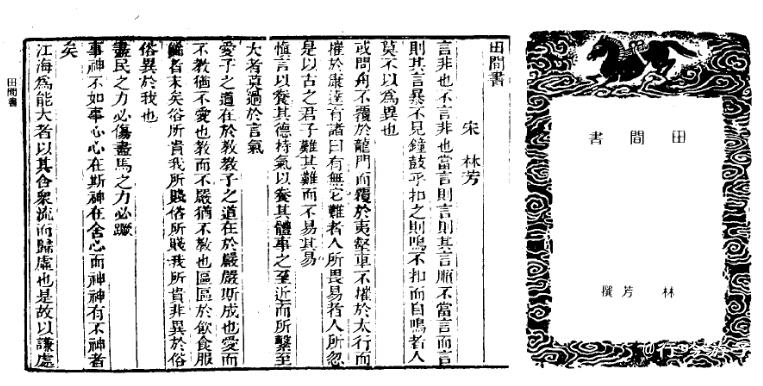 田間書
林芳撰
田間書
宋 林芳
言非也不言非也當言則言則其言順不當言而言
則其言暴不見鐘鼓乎扣之則鳴不扣而自鳴者人
莫不以爲異也
或問舟不覆於龍門而覆於夷壑車不摧於太行而
摧於康逵有諸曰有無它難者人所畏易者人所忽
是以古之君子難其難而不易其易
慎言以養其德持氣以養其體事之至近而所繫至
大者莫過於言氣
愛子之道在於教教子之道在於嚴嚴斯成也愛而
不教猶不愛也教而不嚴猶不教也區區於飲食服
飾者末矣俗所貴我所賤俗所賤我所貴非異於俗
俗異於我也
盡民之力必傷盡馬之力必蹶
事神不如事心心在斯神在舍心而神神有不神者
矣
江海爲能大者以其含衆流而歸虛也是故以謙處
田間書